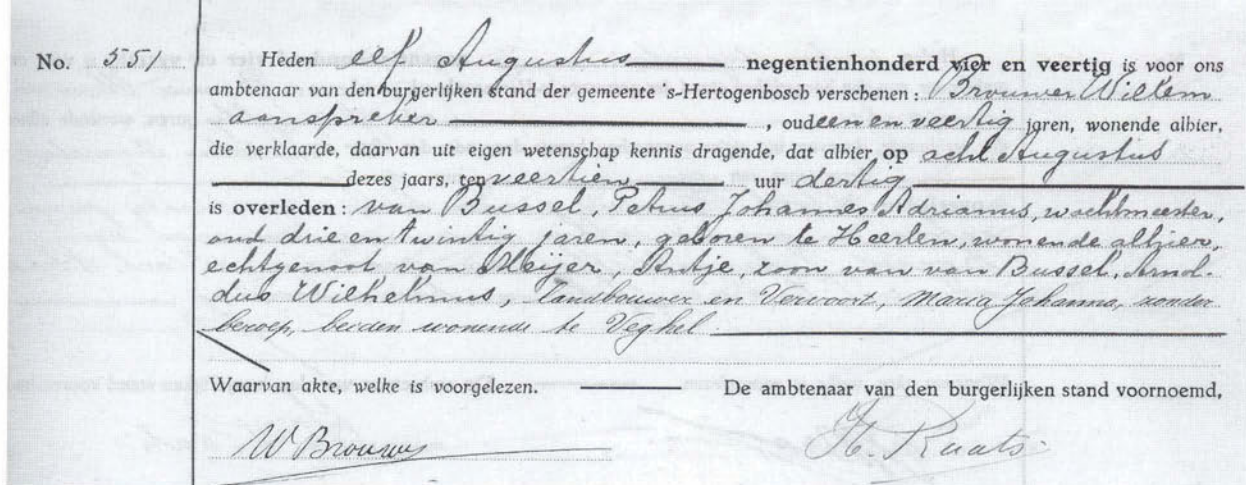 No. 551 Heden elf Augustus negentienhonderd vier en veertig is voor ons
ambtenaar van den burgerlijken stand der gemeente 's-Hertogenbosch verschenen: Brouwer Willem
aanspreker, oud een en veertig jaren, wonende alhier,
die verklaarde, daarvan uit eigen wetenschap kennis dragende, dat alhier op acht Augustus
dezes jaars, ten veertien uur dertig
is overleden: van Bussel, Petrus Johannes Adrianus, wachtmeester,
oud drie en twintig jaren, geboren te Heerlen, wonende alhier,
echtgenoot van Meijer, Antje, zoon van van Bussel, Arnol-
dus Wilhelmus, landbouwer en Vervoort, Maria Johanna, zonder
beroep, beiden wonende te Veghel
Waarvan akte, welke is voorgelezen. De ambtenaar van den burgerlijken stand voornoemd,
W Brouwer